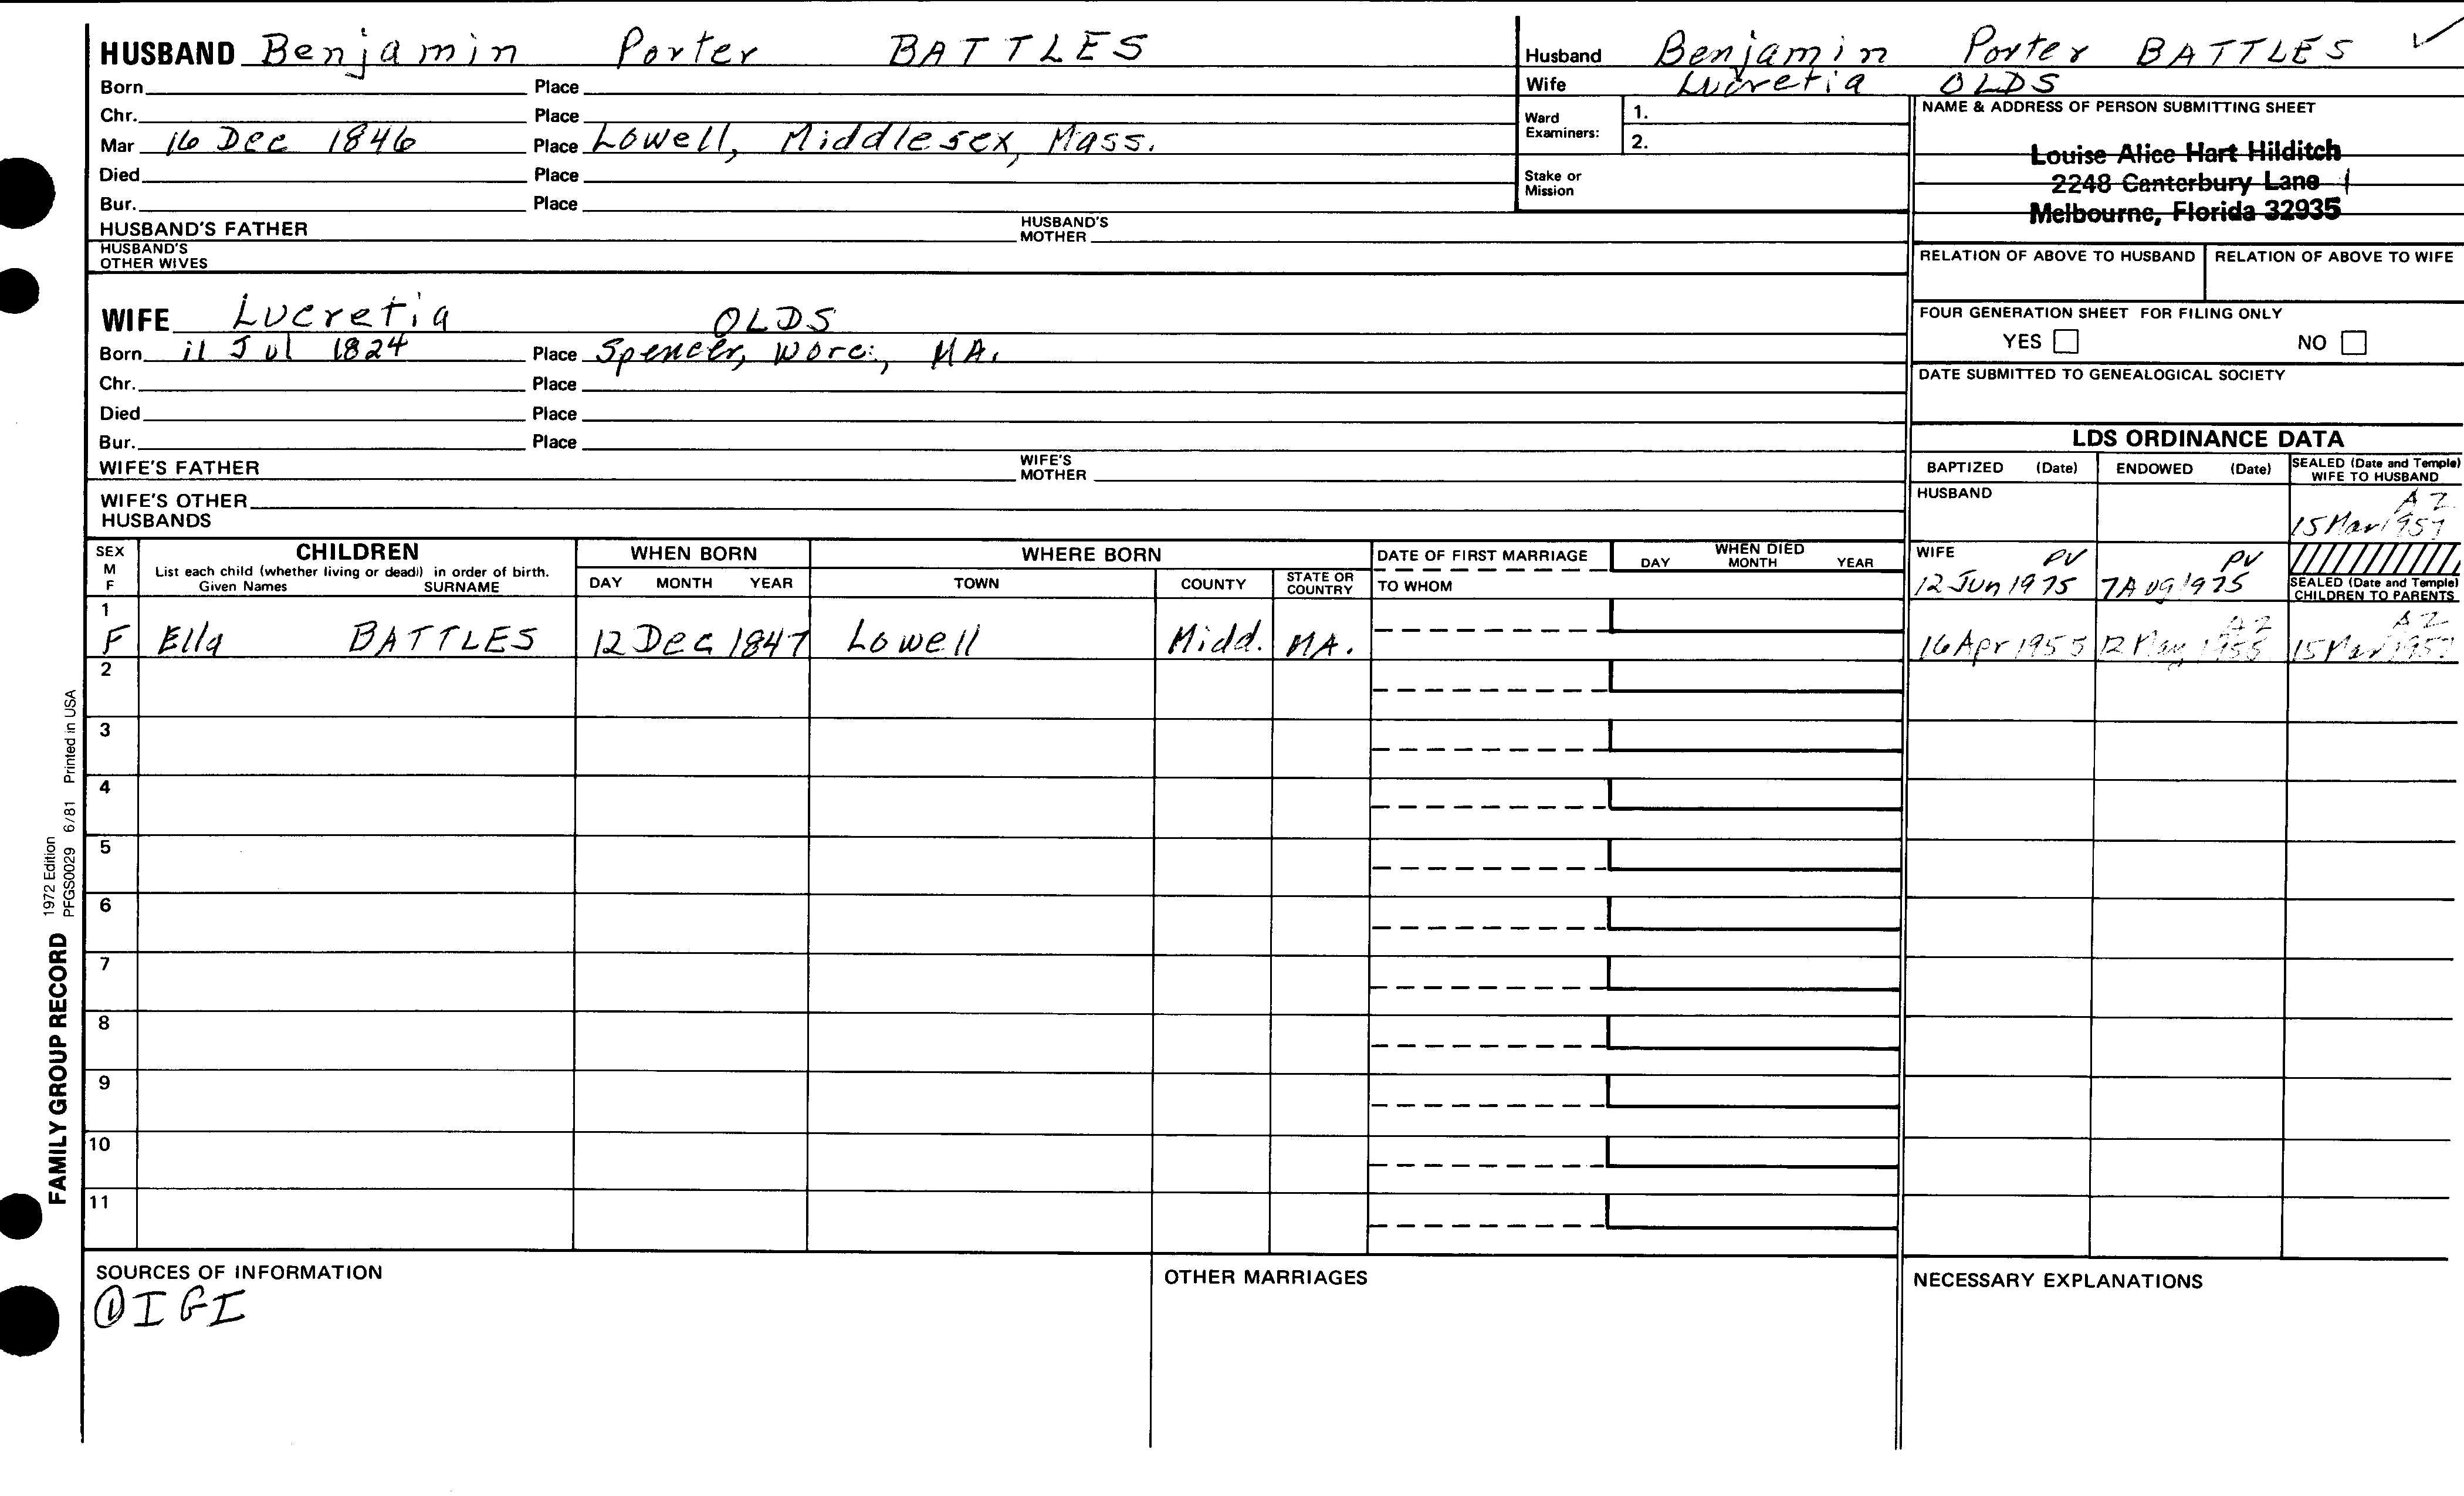 HUSBAND Benjamin Porter BATTLES
Born Place
Chr. Place
Mar 16 Dec 1846 Place Lowell, Middlesex, Mass.
Died Place
Bur. Place
HUSBAND'S FATHER HUSBAND'S MOTHER
HUSBAND'S OTHER WIVES
WIFE Lucretia OLDS
Born 11 Jul 1824 Place Spencer, Worc., MA.
Chr. Place
Died Place
Bur. Place
WIFE'S FATHER WIFE'S MOTHER
WIFE'S OTHER HUSBANDS
Husband Benjamin Porter BATTLES ✓
Wife Lucretia OLDS
Ward Examiners: 1.
2.
Stake or Mission
NAME & ADDRESS OF PERSON SUBMITTING SHEET
Louise Alice Hart Hilditch
2248 Canterbury Lane
Melbourne, Florida 32935
RELATION OF ABOVE TO HUSBAND RELATION OF ABOVE TO WIFE
FOUR GENERATION SHEET FOR FILING ONLY
YES NO
DATE SUBMITTED TO GENEALOGICAL SOCIETY
LDS ORDINANCE DATA
BAPTIZED (Date) ENDOWED (Date) SEALED (Date and Temple) WIFE TO HUSBAND
HUSBAND AZ
15 Mar 1957
WIFE PV PV
12 Jun 1975 7 Aug 1975 SEALED (Date and Temple) CHILDREN TO PARENTS
SEX M F CHILDREN WHEN BORN WHERE BORN DATE OF FIRST MARRIAGE WHEN DIED
List each child (whether living or dead) in order of birth.
Given Names SURNAME DAY MONTH YEAR TOWN COUNTY STATE OR COUNTRY TO WHOM DAY MONTH YEAR
1 AZ AZ
F Ella BATTLES 12 Dec 1847 Lowell Midd. MA. 16 Apr 1955 12 May 1955 15 Mar 1957
2
3
4
5
6
7
8
9
10
11
SOURCES OF INFORMATION OTHER MARRIAGES NECESSARY EXPLANATIONS
① IGI
FAMILY GROUP RECORD 1972 Edition
PFGS0029 6/81 Printed in USA